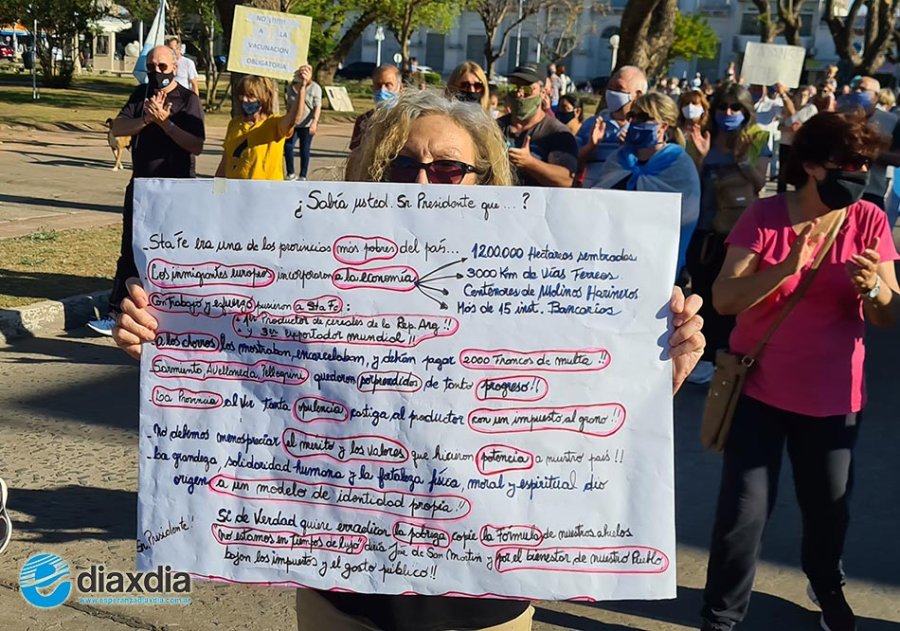 NO
A LA
VACUNACIÓN
OBLIGATORIA
¿Sabía usted. Sr Presidente que...?
- Sta Fe era una de las provincias más pobres del país...
1200.000 Hectáreas sembradas
Los inmigrantes europeos incorporaron a la economía
3000 Km de Vías Ferreas
Centenares de Molinos Harineros
Más de 15 inst. Bancarias
Con trabajo y esfuerzo pusieron a Sta Fe:
- 1er Productor de cereales de la Rep. Arg!!
y 3er exportador mundial!!
a los chorros los mostraban, encarcelaban, y debían pagar 2000 Troncos de multa!!
Sarmiento, Avellaneda, Pellegrini quedaron sorprendidos de tanto progreso!!
La Provincia al ver tanta opulencia castiga al productor con un impuesto al grano!!
- No debemos menospreciar el mérito y los valores que hicieron potencia a nuestro país!!
- La grandeza, solidaridad humana y la fortaleza física, moral y espiritual dio
origen a un modelo de identidad propia!!
Sr. Presidente!!
Si de Verdad quiere erradicar la pobreza copie la Fórmula de nuestros abuelos
"no estamos en tiempos de lujo" decía José de San Martín y por el bienestar de nuestro Pueblo
bajen los impuestos y el gasto público!!
diaxdia